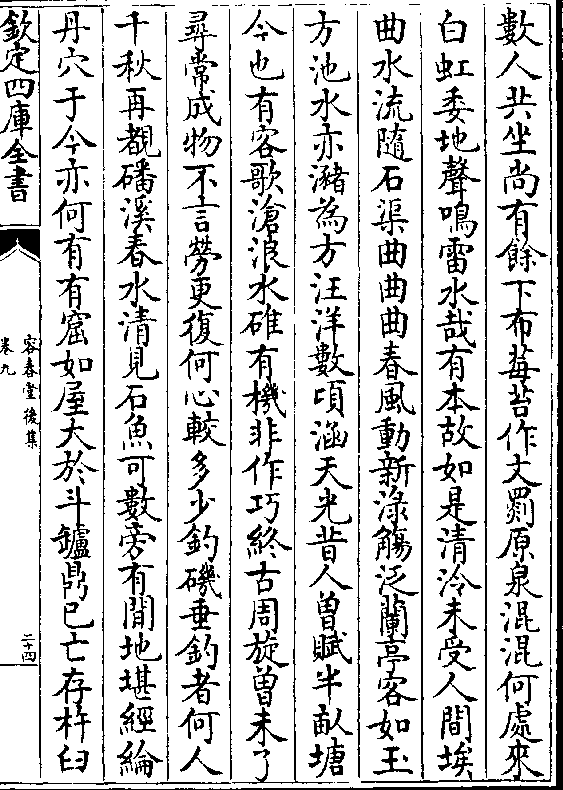 數人共坐尚有餘下布莓苔作文罽原泉混混何處來
白虹委地聲鳴雷水哉有本故如是清泠未受人間埃
曲水流隨石渠曲曲曲春風動新淥觴泛蘭亭客如玉
方池水亦瀦為方汪洋數頃涵天光昔人曾賦半畝塘
今也有客歌滄浪水碓有機非作巧終古周旋曾未了
尋常成物不言勞更復何心較多少釣磯垂釣者何人
千秋再覩磻溪春水清見石魚可數旁有閒地堪經綸
丹穴于今亦何有有窟如屋大於斗鑪鼎已亡存杵臼
欽定四庫全書
容春堂後集
卷九
二十四